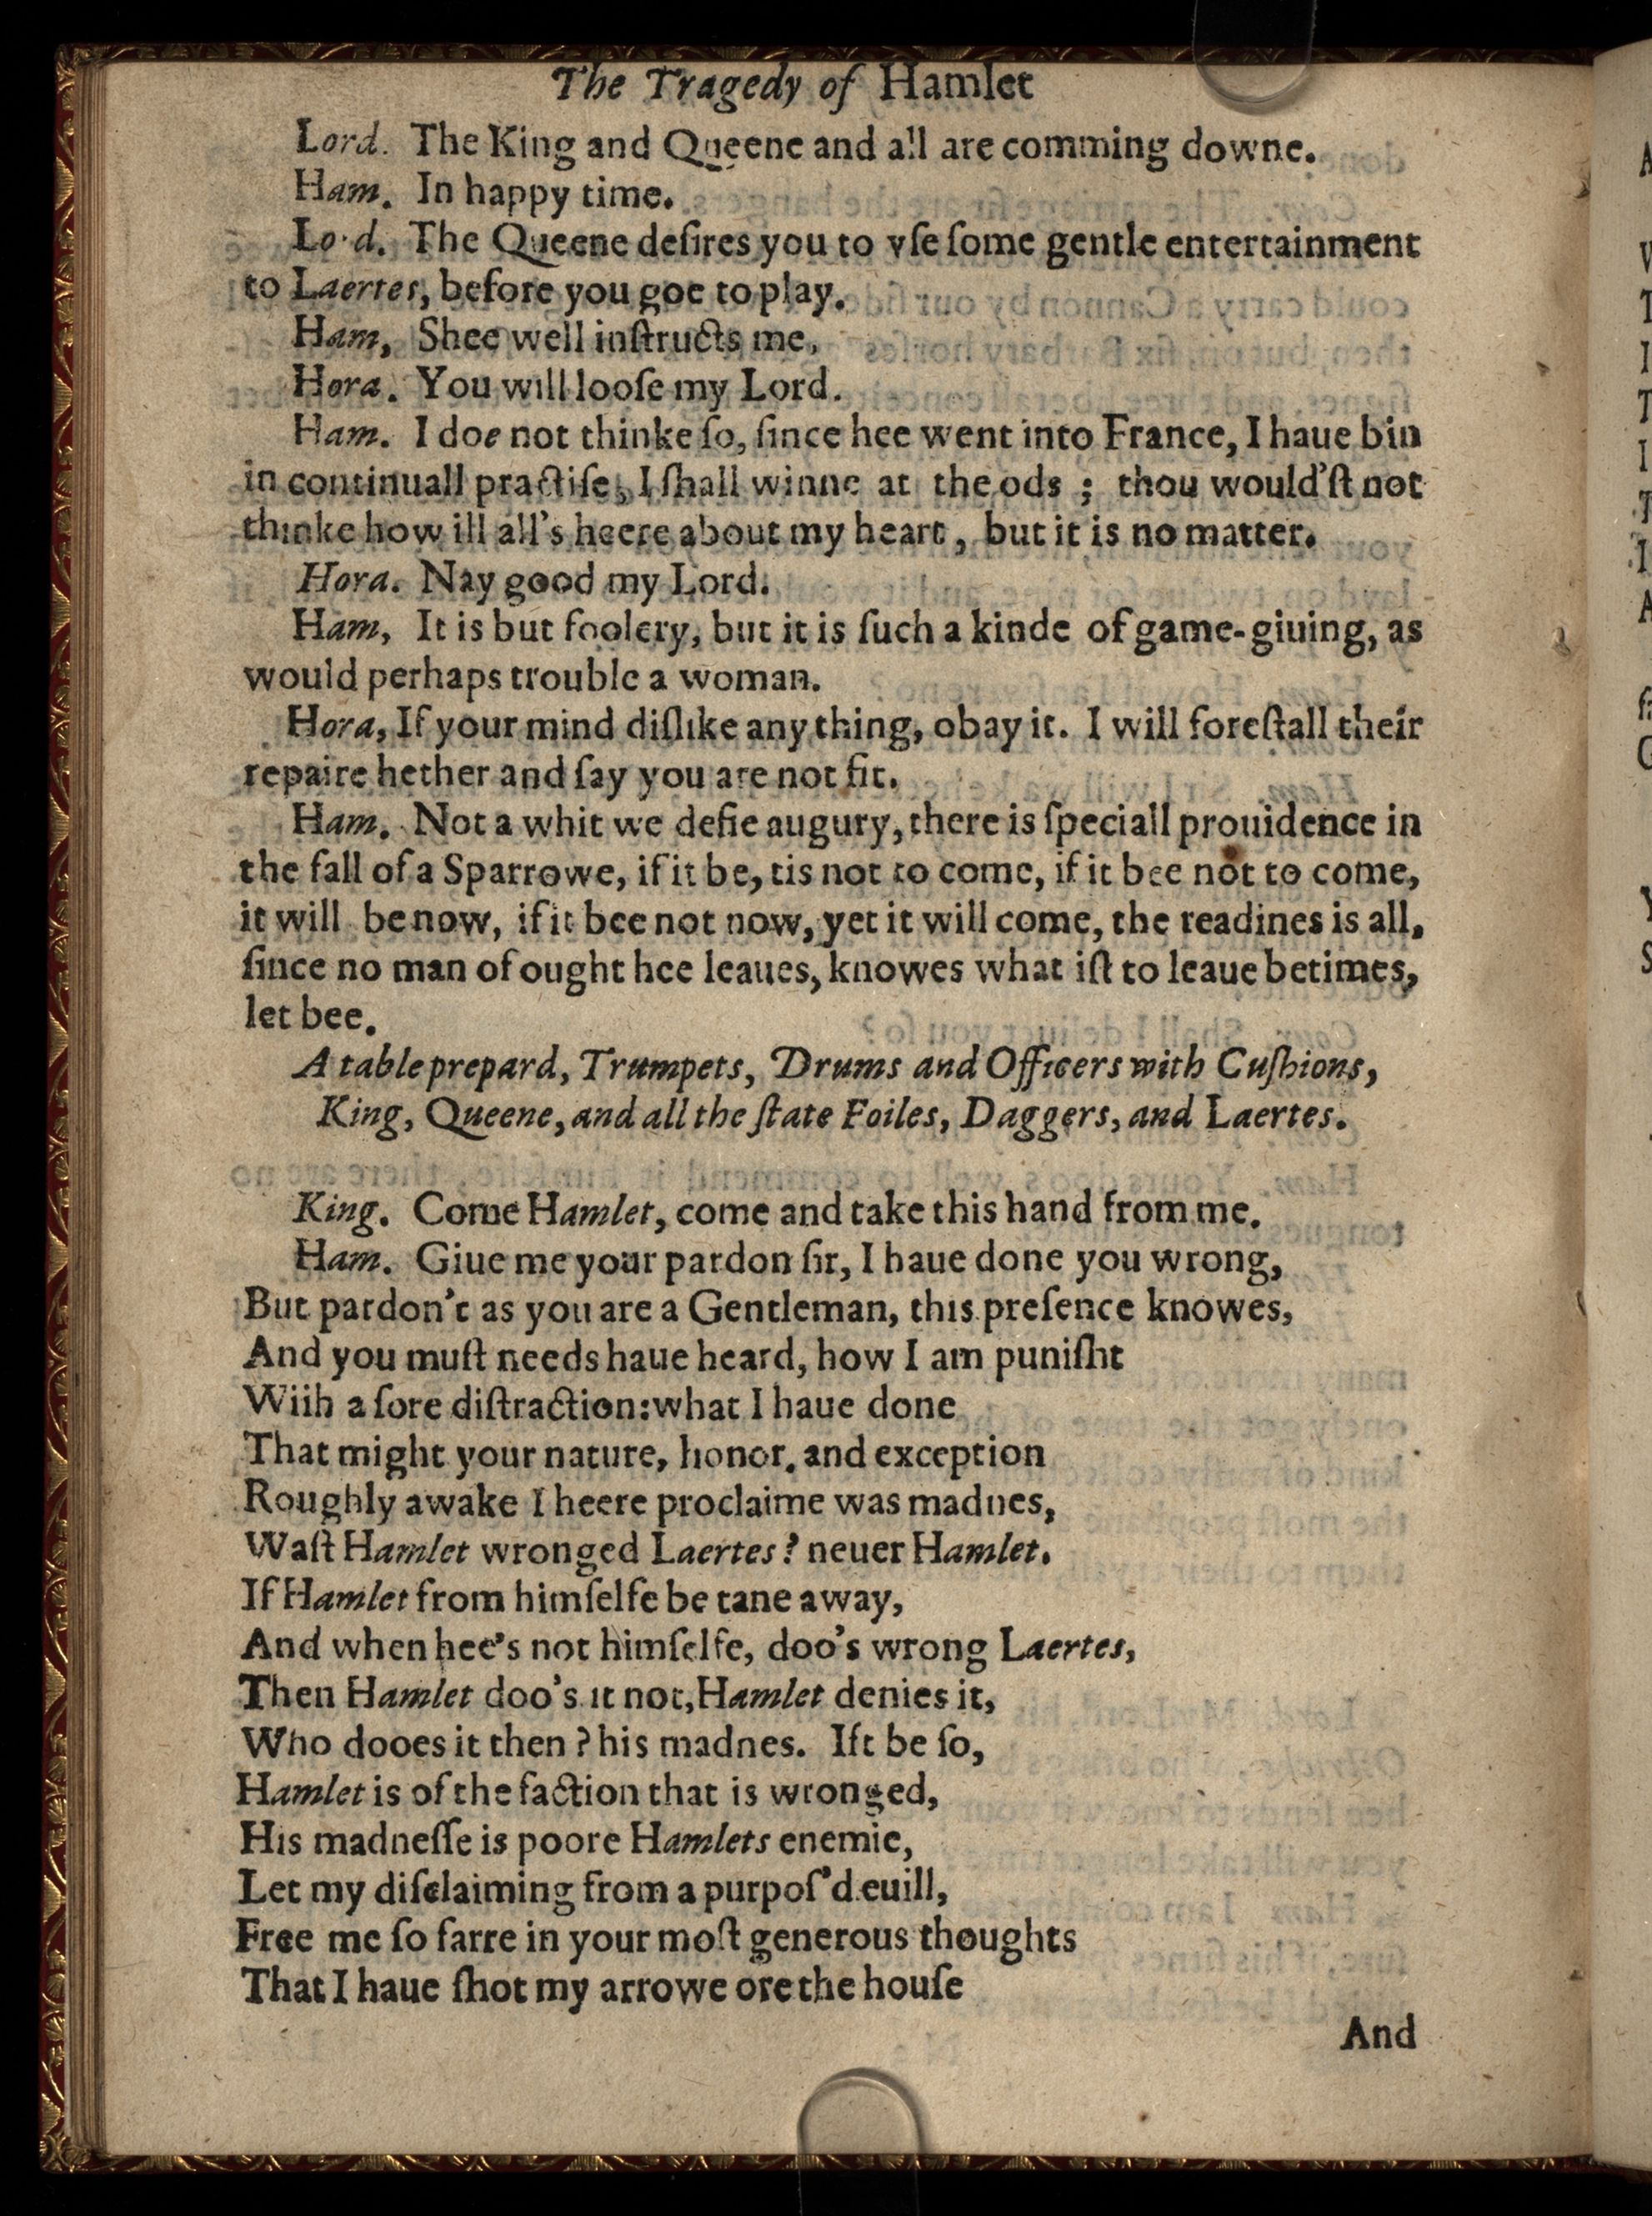 The Tragedy of Hamlet
Lord. The King and Queene and all are comming downe.
Ham. In happy time.
Lo·d. The Queene deſires you to vſe ſome gentle entertainment
to Laertes, before you goe to play.
Ham, Shee well inſtructs me,
Hora. You will looſe my Lord.
Ham. I doe not thinke ſo, ſince hee went into France, I haue bin
in continuall practiſe, I ſhall winne at the ods ; thou would'ſt not
thinke how ill all's heere about my heart, but it is no matter.
Hora. Nay good my Lord.
Ham, It is but foolery, but it is ſuch a kinde of game-giuing, as
would perhaps trouble a woman.
Hora, If your mind diſlike any thing, obay it. I will foreſtall their
repaire hether and ſay you are not fit.
Ham. Not a whit we defie augury, there is ſpeciall prouidence in
the fall of a Sparrowe, if it be, tis not to come, if it bee not to come,
it will be now, if it bee not now, yet it will come, the readines is all,
ſince no man of ought hee leaues, knowes what iſt to leaue betimes,
let bee.
A table prepard, Trumpets, Drums and Officers with Cuſhions,
King, Queene, and all the ſtate Foiles, Daggers, and Laertes.
King. Come Hamlet, come and take this hand from me.
Ham. Giue me your pardon ſir, I haue done you wrong,
But pardon't as you are a Gentleman, this preſence knowes,
And you muſt needs haue heard, how I am puniſht
Wiih a ſore diſtraction:what I haue done
That might your nature, honor. and exception
Roughly awake I heere proclaime was madnes,
Waſt Hamlet wronged Laertes? neuer Hamlet.
If Hamlet from himſelfe be tane away,
And when hee's not himſelfe, doo's wrong Laertes,
Then Hamlet doo's it not, Hamlet denies it,
Who dooes it then ? his madnes. Iſt be ſo,
Hamlet is of the faction that is wronged,
His madneſſe is poore Hamlets enemie,
Let my diſclaiming from a purpoſ'd euill,
Free me ſo farre in your moſt generous thoughts
That I haue ſhot my arrowe ore the houſe
And